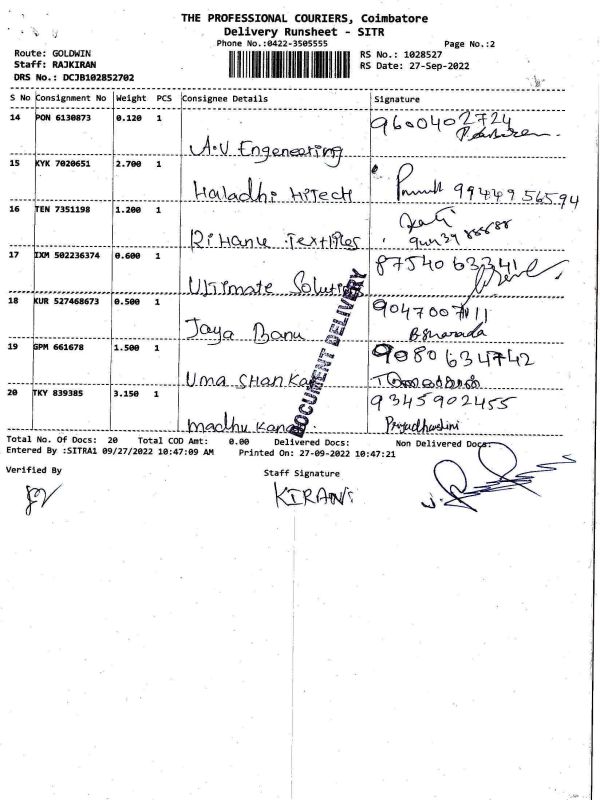 THE PROFESSIONAL COURIERS, Coimbatore
Delivery Runsheet - SITR
Phone No.:0422-3505555
Page No.:2
Route: GOLDWIN
Staff: RAJKIRAN
DRS No.: DCJB102852702
RS No.: 1028527
RS Date: 27-Sep-2022
S No Consignment No Weight PCS Consignee Details Signature
14 PON 6130873 0.120 1 9600402724
A.V Engeneering
15 KYK 7020651 2.700 1
Haladhi HiTech 9944956594
16 TEN 7351198 1.200 1
Textiles
17 IXM 502236374 0.600 1 8754063341
Ultimate Solution
18 KUR 527468673 0.500 1 9047007111
Jaya Banu B.Sharada
19 GPM 661678 1.500 1 9080634742
Uma SHanKa
20 TKY 839385 3.150 1 9345902455
madhu Kana Priyadharshini
DOCUMENT DELIVERY
Total No. Of Docs: 20 Total COD Amt: 0.00 Delivered Docs: Non Delivered Docs:
Entered By :SITRA1 09/27/2022 10:47:09 AM Printed On: 27-09-2022 10:47:21
Verified By Staff Signature
KIRAN